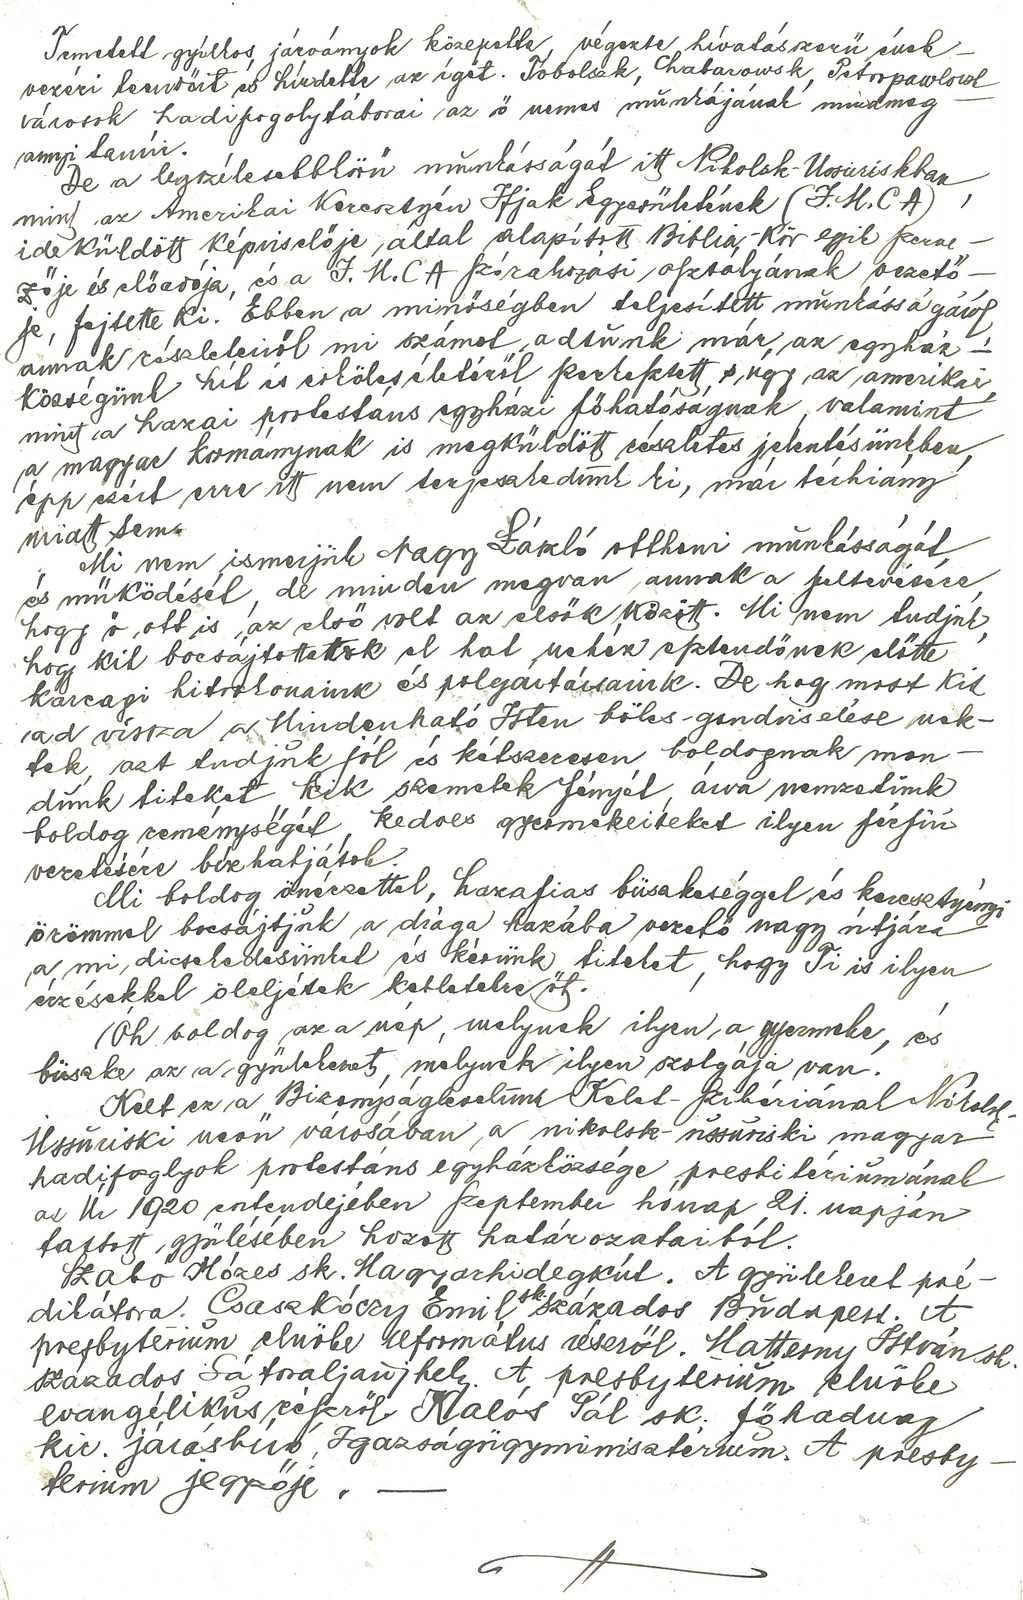 Temetett gyilkos járványok közepette, végezte hivatásszerü ének-
vezéri teendőit és hirdette az igét. Tobolszk, Chabarowsk, Petropawlowsk
városok hadifogolytáborai az ő nemes munkájának mindmeg-
annyi tanúi.
De a legszélesebbkörü munkásságát itt Nikolsk-Ussuriskban
mint az Amerikai Keresztyén Ifjak Egyesületének (I.M.C.A),
ideküldött képviselője által alapított Biblia-Kör egyik szerve-
zője és előadója, és a I.M.C.A szórakozási osztályának vezető-
je, fejtette ki. Ebben a minőségben teljesített munkásságáról
annak részleteiről mi számot adtunk már, az egyház-
községünk hit és erkölcséletéről szerkesztett, úgy az amerikai,
mint a hazai protestáns egyházi főhatóságnak, valamint
a magyar kormánynak is megküldött részletes jelentésünkben,
épp ezért erre itt nem terjeszkedünk ki, már térhiány
miatt sem.
Mi nem ismerjük Nagy László otthoni munkásságát
és működését, de minden megvan annak a feltevésére,
hogy ő ott is az első volt az elsők között. Mi nem tudjuk,
hogy kit bocsájtottatok el hat nehéz esztendőnek előtte
karcagi hitrokonaink és polgártársaink. De hogy most kit
ad vissza a Mindenható Isten bölcs-gondviselése nek-
tek, azt tudjuk jól és kétszeresen boldognak mon-
dunk titeket, kik szemetek fényét, árva nemzetünk
boldog reménységét, kedves gyermekeiteket ilyen férfiú
vezetésére bízhatjátok.
Mi boldog önérzettel, hazafias büszkeséggel és keresztyényi
örömmel bocsájtjuk a drága hazába vezető nagy útjára
a mi dicsekedésünket és kérünk titeket, hogy Ti is ilyen
érzésekkel öleljétek kebletekre őt.
Óh boldog az a nép, melynek ilyen a gyermeke, és
büszke az a gyülekezet, melynek ilyen szolgája van.
Kelt ez a Bizonyságlevelünk Kelet-Szibériának Nikolsk-
Ussuriski nevű városában, a nikolsk-ussuriski magyar
hadifoglyok protestáns egyházközsége presbitériumának
az Úr 1920 esztendejében Szeptember hónap 21. napján
tartott gyülésében hozott határozataiból.
Szabó Mózes sk. Magyarhidegkút. A gyülekezet pré-
dikátora. Csaszkóczy Emil sk százados Budapest. A
presbyterium elnöke református részről. Matterny István sk.
százados Sátoraljaujhely. A presbyterium elnöke
evangélikus részről. Kalós Pál sk. főhadnagy
kir. járásbíró, Igazságügyminisztérium. A presby-
terium jegyzője. —